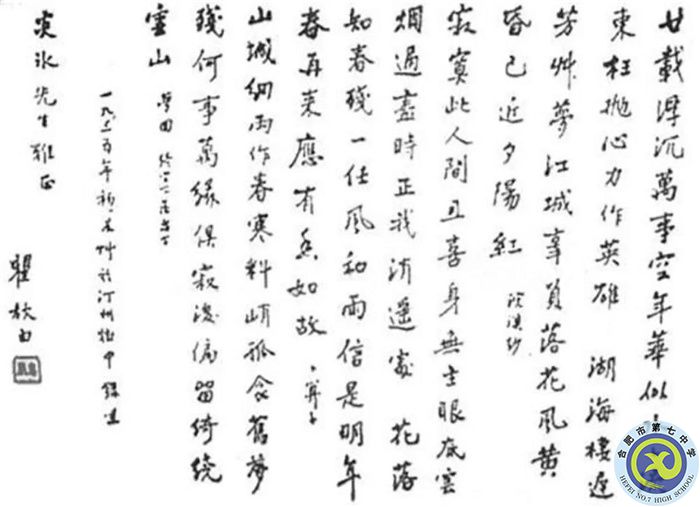 廿載浮沉萬事空年華似
東枉抛心力作英雄 湖海棲遲
芳艸夢江城辜負落花風黄
昏已近夕陽紅 浣溪紗
寂寞此人間且喜身無主眼底雲
烟過盡時正我逍遥處 花落
知春殘一任風和雨信是明年
春再來應有香如故 卜算子
山城細雨作春寒料峭孤衾舊夢
殘何事萬緣俱寂後偏留綺繞
雲山 夢回
一九三五年初 艸於汀州獄中 錄呈
炎冰先生雅正
瞿秋白
合肥市第七中学
HEFEI NO.7 HIGH SCHOOL